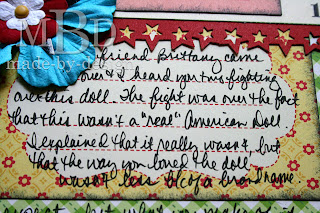 MBD
made-by-de
friend Brittany came
over & I heard you two fighting
over this doll. The fight was over the fact
that this wasn't a "real" American Doll
I explained that it really wasn't but
that the way you loved the doll
wasn't less b/c of a brand name